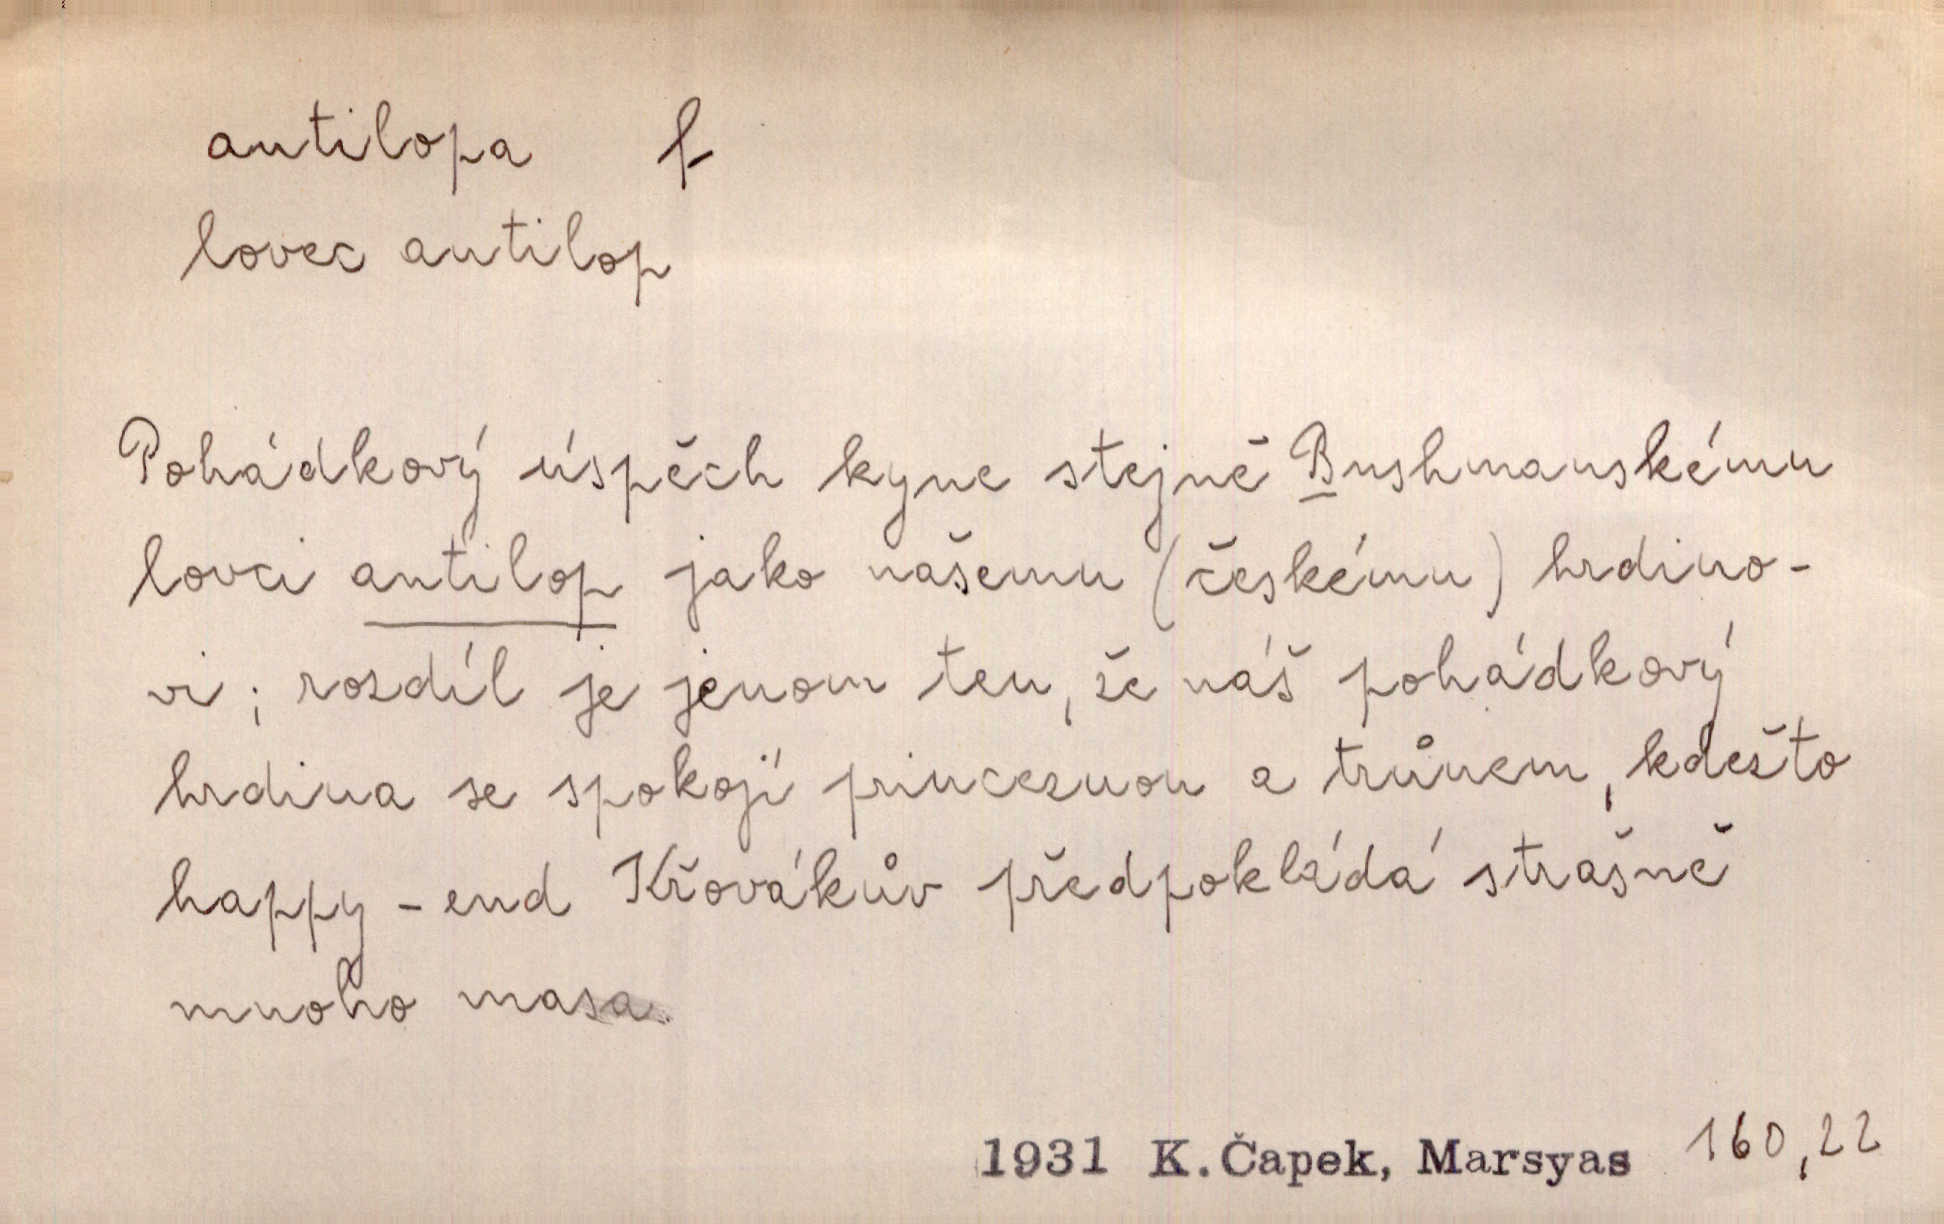 antilopa f
lovec antilop
Pohádkový úspěch kyne stejně Bushmanskému
lovci antilop jako našemu (českému) hrdino-
vi; rozdíl je jenom ten, že náš pohádkový
hrdina se spokojí princeznou a trůnem, kdežto
happy-end Křovákův předpokládá strašně
mnoho masa.
1931 K. Čapek, Marsyas 160,22